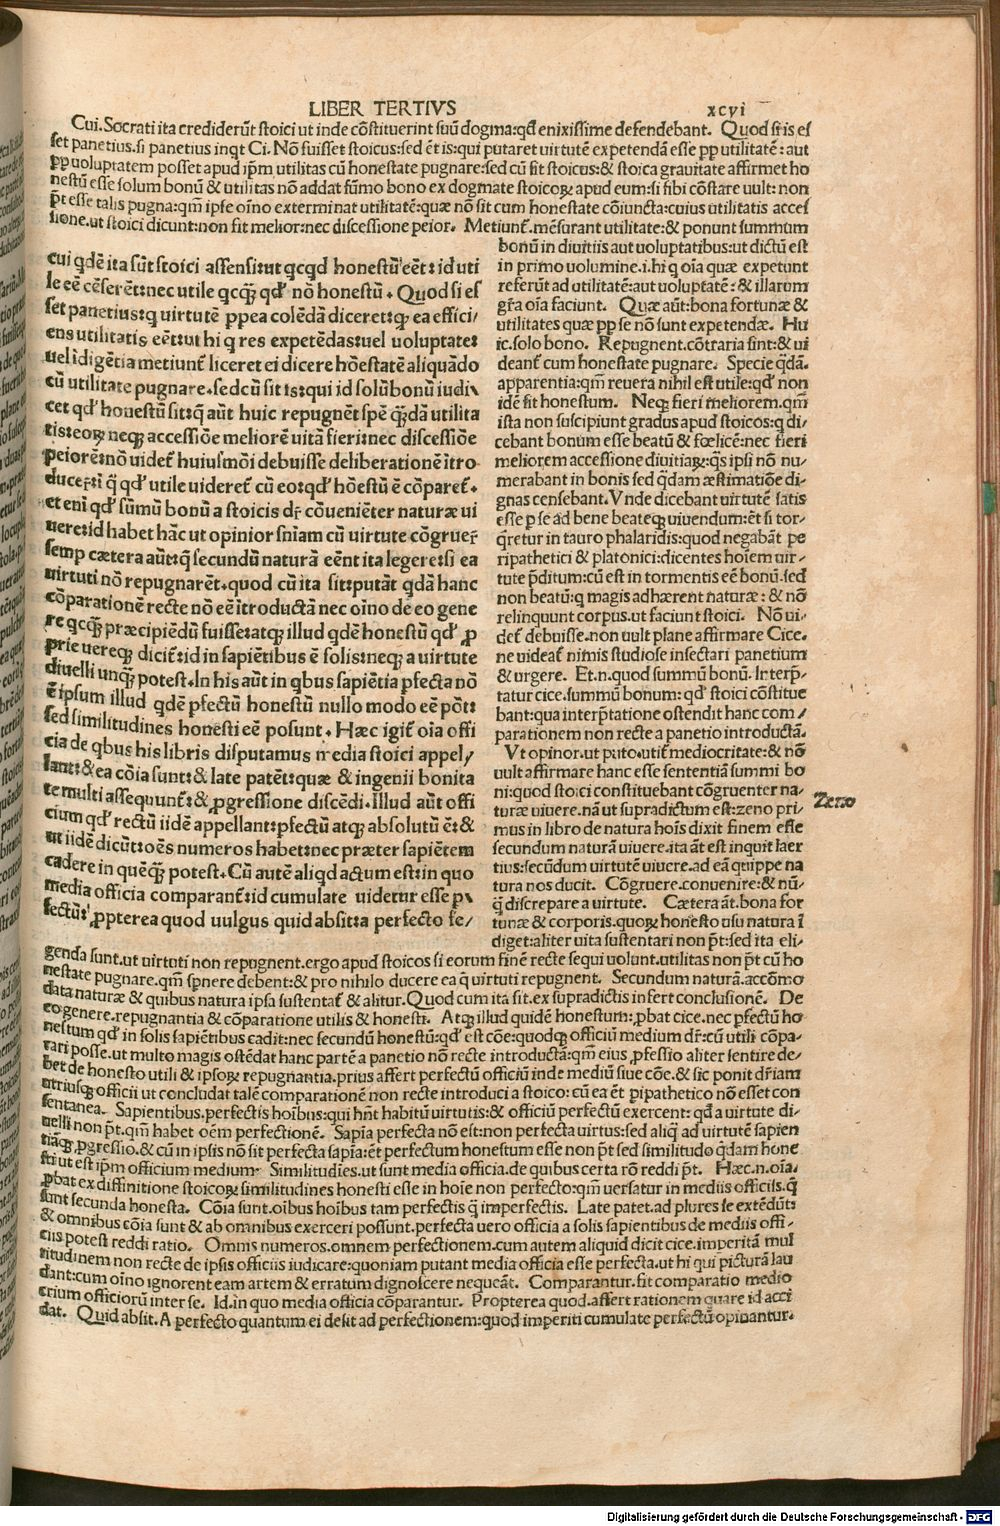 LIBER TERTIVS xcvi
Cui.Socrati ita crediderūt stoici ut inde cōstituerint suū dogma:qđ enixissime defendebant. Quod si is es
set panetius.si panetius inqt Ci. Nō fuisset stoicus:sed ēt is:qui putaret virtutē expetendā esse pp utilitatē:aut
pp uoluptatem posset apud ipm utilitas cū honestate pugnare:sed cū sit stoicus:& stoica grauitate affirmet ho
nestū esse solum bonū & utilitas nō addat sūmo bono ex dogmate stoicoꝝ apud eum:si sibi cōstare uult: non
pt esse talis pugna:qm ipse oīno exterminat utilitatē:quæ nō sit cum honestate cōiuncta:cuius utilitatis acces
sione.ut stoici dicunt:non fit melior:nec discessione peior. Metiunt.mēsurant utilitate:& ponunt summum
cui qdē ita sūt stoici assensi:ut qcqd honestū eēt:id uti
le eē cēserēt:nec utile qcꝗ qđ nō honestū. Quod si es
set panetius:q uirtutē ppea colēdā diceret:ꝙ ea effici/
ens utilitatis eēt:ut hi q res expetēdas:uel uoluptate:
uel īdigētia metiunt liceret ei dicere hōestatē aliquādo
cū utilitate pugnare.sedcū sit is:qui id solū bonū iudi\
cet qđ honestū sit:q aūt huic repugnēt spē qdā utilita
tis:eoꝝ neqꝫ accessiōe meliorē uitā fieri:nec discessiōe
peiorē:nō uidet huiusmōi debuisse deliberationē itro
ducere:ī q qđ utile uideret cū eo:qđ hōestū ē cōparet.
et enī qđ sūmū bonū a stoicis dr cōueniēter naturæ ui
uere:id habet hāc ut opinior sn̄iam cū uirtute cōgruer
semp cætera aūt:q secundū naturā eēnt ita legere:si ea
uirtuti nō repugnarēt.quod cū ita sit:putāt qdā hanc
cōparationē recte nō eē itroductā nec oīno de eo gene
re qcꝗ præcipiēdū fuisse:atqꝫ illud qdē honestū qđ p
prie uereqꝫ dicit:id in sapiētibus ē solis:neqꝫ a uirtute
diuelli unqꝫ potest.In his aūt in qbus sapiētia pfecta nō
ē ipsum illud qdē pfectū honestū nullo modo eē pōt:
sed similitudines honesti eē posunt. Hæc igit oīa offi
cia de qbus his libris disputamus media stoici appel/
lant:& ea cōia sunt:& late patēt:quæ & ingenii bonita
te multi assequunt:& pgressione discēdi.Illud aūt offi
cium qđ rectū iidē appellant:pfectū atqꝫ absolutū ē:&
ut iidē dicūt:oēs numeros habet:nec præter sapiētem
cadere in quēꝗ potest.Cū autē aliqd actum est:in quo
media officia comparant:id cumulate uidetur esse p\
fectū:ppterea quod uulgus quid absit:a perfecto fe/
bonū in diuitiis aut uoluptatibus:ut dictū est
in primo uolumine.i.hi q oīa quæ expetunt
referūt ad utilitatē:aut uoluptatē:& illarum
gra oīa faciunt. Quæ aūt:bona fortunæ &
utilitates quæ pp se nō sunt expetendæ. Hu
ic.solo bono. Repugnent.cōtraria sint:& ui
deant cum honestate pugnare. Specie qdā.
apparentia:qm reuera nihil est utile:qđ non
idē sit honestum. Neqꝫ fieri meliorem.qm
ista non suscipiunt gradus apud stoicos:q di/
cebant bonum esse beatū & fœlicē:nec fieri
meliorem accessione diuitiaꝝ:qs ipsi nō nu/
merabant in bonis sed qdam æstimatiōe di-
gnas censebant.Vnde dicebant uirtutē satis
esse p se ad bene beateqꝫ uiuendum:ēt si tor-
qretur in tauro phalaridis:quod negabāt pe
ripathetici & platonici:dicentes hoīem uir-
tute pditum:cū est in tormentis eē bonū.sed
non beatū:q magis adhærent naturæ:& nō
relinquunt corpus.ut faciunt stoici. Nō ui-
det debuisse.non uult plane affirmare Cice.
ne uideat nimis studiose insectari panetium
& urgere. Et.n.quod summū bonū. Interp-
tatur cice.summū bonum:qđ stoici cōstitue
bant:qua interptatione ostendit hanc com/
parationem non recte a panetio introductā.
Vt opinor.ut puto.utit mediocritate:& nō
uult affirmare hanc esse sententiā summi bo
ni:quod stoici constituebant cōgruenter na-
turæ uiuere.nā ut supradictum est:zeno pri/
mus in libro de natura hois dixit finem esse
secundum naturā uiuere.ita āt est inquit laer
tius:secūdum uirtutē uiuere.ad eā quippe na
tura nos ducit. Cōgruere.conuenire:& nū-
q discrepare a uirtute. Cætera āt.bona for
tunæ & corporis.quoꝝ honesto usu natura ī
diget:aliter uita sustentari non pt:sed ita eli-
Zeno
genda sunt.ut uirtuti non repugnent.ergo apud stoicos si eorum finē recte sequi uolunt.utilitas non pt cū ho
nestate pugnare.qm spnere debent:& pro nihilo ducere ea q uirtuti repugnent. Secundum naturā.accōmo
data naturæ & quibus natura ipsa sustentat & alitur.Quod cum ita sit.ex supradictis infert conclusionē. De
eo genere.repugnantia & cōparatione utilis & honesti. Atqꝫ illud quidē honestum:pbat cice.nec pfectū ho
nestum qđ in solis sapiētibus cadit:nec secundū honestū:qđ est cōe:quodqꝫ officiū medium dr:cū utili cōpa-
rari posse.ut multo magis ostēdat hanc partē a panetio nō recte introductā:qm eius pfessio aliter sentire de/
bet de honesto utili & ipsoꝝ repugnantia.prius affert perfectū officiū inde mediū siue cōe.& sic ponit driam
utriusqꝫ officii ut concludat talē comparationē non recte introduci a stoico:cū ea ēt pipathetico nō esset con
sentanea. Sapientibus.perfectis hoībus:qui hnt habitū uirtutis:& officiū perfectū exercent:qđ a uirtute di-
uelli non pt.qm habet oēm perfectionē. Sapīa perfecta nō est:non perfecta uirtus:sed aliq ad uirtutē sapien
tiāqꝫ pgressio.& cū in ipsis nō sit perfecta sapīa:ēt perfectum honestum esse non pt sed similitudo qdam hone
sti ut est ipm officium medium. Similitudīes.ut sunt media officia.de quibus certa rō reddi pt. Hæc.n.oīa.
pbat ex diffinitione stoicoꝝ similitudines honesti esse in hoīe non perfecto:qm uersatur in mediis officiis.q
sunt secunda honesta. Cōia sunt.oībus hoībus tam perfectis q imperfectis. Late patet.ad plures se extēdūt:
& omnibus cōia sunt & ab omnibus exerceri possunt.perfecta uero officia a solis sapientibus de mediis offi-
ciis potest reddi ratio. Omnis numeros.omnem perfectionem.cum autem aliquid dicit cice.imperitā mul
titudinem non recte de ipsis officiis iudicare:quoniam putant media officia esse perfecta.ut hi qui picturā lau
dant:cum oīno ignorent eam artem & erratum dignoscere nequeāt. Comparantur.fit comparatio medio
crium officiorū inter se. Id.in quo media officia cōparantur. Propterea quod.affert rationem quare id acci
dat. Quid absit.A perfecto quantum ei desit ad perfectionem:quod imperiti cumulate perfectū opinantur.
Digitalisierung gefördert durch die Deutsche Forschungsgemeinschaft - DFG